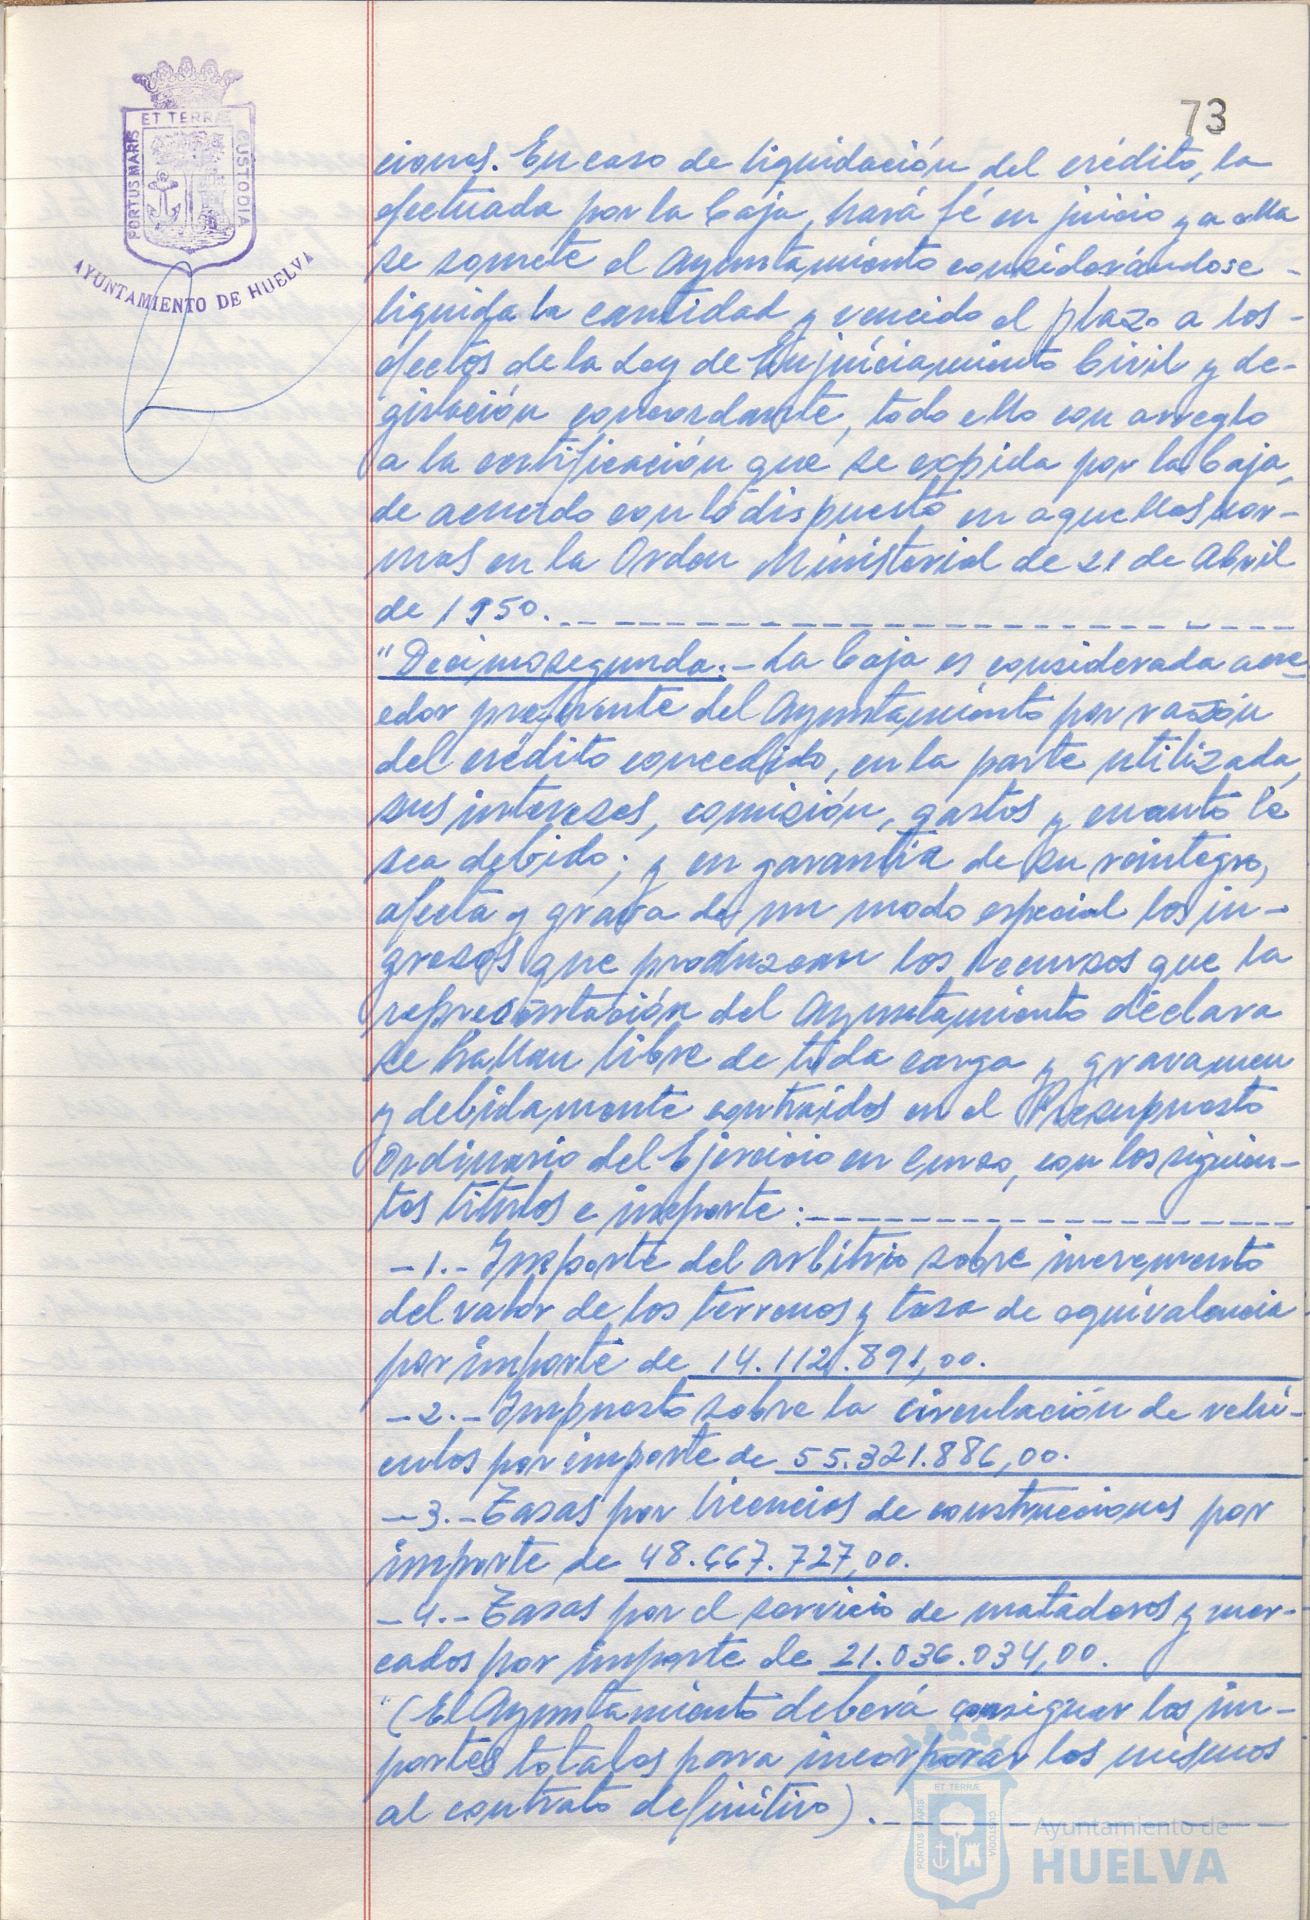 73
ET TERRÆ
PORTUS MARIS
CUSTODIA
AYUNTAMIENTO DE HUELVA
ciones. En caso de liquidación del crédito, la
efectuada por la Caja, hará fé en juicio y a ella
se somete el Ayuntamiento considerándose -
liquida la cantidad y vencido el plazo a los -
efectos de la Ley de Enjuiciamiento Civil y de-
gislación concordante, todo ello con arreglo
a la certificación que se expida por la Caja,
de acuerdo con lo dispuesto en aquellas nor-
mas en la Orden Ministerial de 21 de Abril
de 1950.
"Decimosegunda.- La Caja es considerada acre
edor preferente del Ayuntamiento por razón
del crédito concedido, en la parte utilizada,
sus intereses, comisión, gastos y cuanto le
sea debido; y en garantía de su reintegro,
afecta y grava de un modo especial los in-
gresos que produzcan los recursos que la
representación del Ayuntamiento declara
se hallan libre de toda carga y gravamen
y debidamente contraidos en el Presupuesto
Ordinario del Ejercicio en curso, con los siguien-
tes títulos e importe:
-1.- Importe del arbitrio sobre incremento
del valor de los terrenos y tasa de equivalencia
por importe de 14.112.891,00.
-2.- Impuesto sobre la circulación de vehí-
culos por importe de 55.321.886,00.
-3.- Tasas por licencias de construcciones por
importe de 48.667.727,00.
-4.- Tasas por el servicio de mataderos y mer-
cados por importe de 21.036.034,00.
"(El Ayuntamiento deberá consignar los im-
portes totales para incorporar los mismos
al contrato definitivo).
ET TERRÆ
PORTUS MARIS
CUSTODIA
Ayuntamiento de
HUELVA